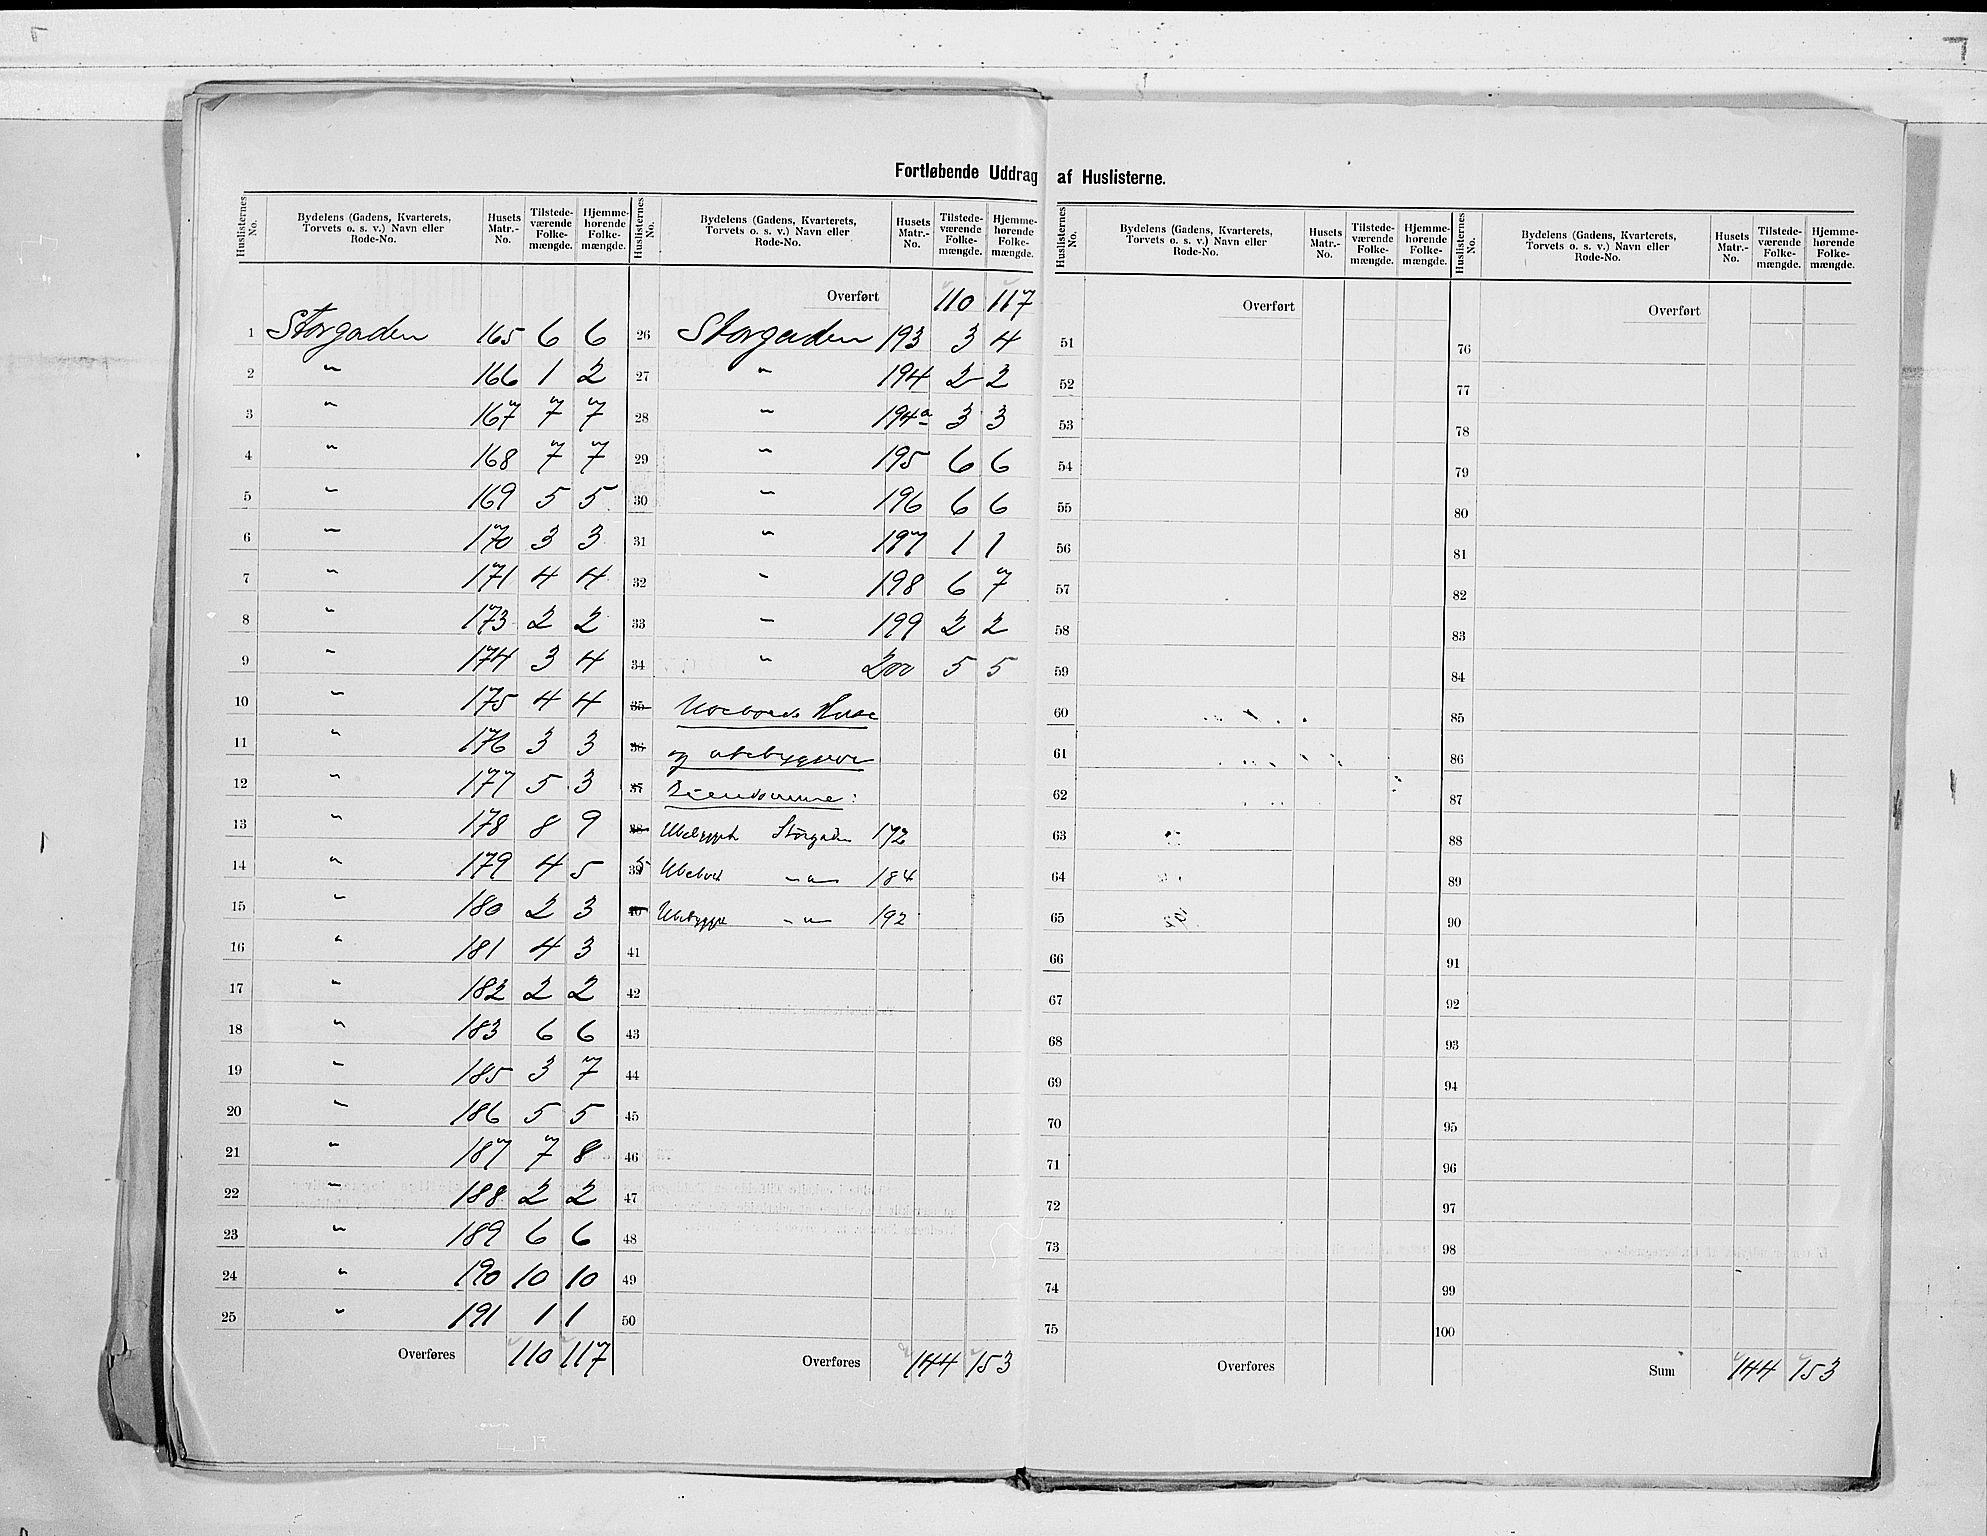 Fortløbende Uddrag af Huslisterne.
Huslisternes No. Bydelens (Gadens, Kvarterets, Torvets o. s. v.) Navn eller Rode-No. Husets Matr.-No. Tilstedeværende Folkemængde. Hjemmehørende Folkemængde.
1 Storgaden 165 6 6
2 " 166 1 2
3 " 167 7 7
4 " 168 7 7
5 " 169 5 5
6 " 170 3 3
7 " 171 4 4
8 " 173 2 2
9 " 174 3 4
10 " 175 4 4
11 " 176 3 3
12 " 177 5 3
13 " 178 8 9
14 " 179 4 5
15 " 180 2 3
16 " 181 4 3
17 " 182 2 2
18 " 183 6 6
19 " 185 3 7
20 " 186 5 5
21 " 187 7 8
22 " 188 2 2
23 " 189 6 6
24 " 190 10 10
25 " 191 1 1
Overføres 110 117
Huslisternes No. Bydelens (Gadens, Kvarterets, Torvets o. s. v.) Navn eller Rode-No. Husets Matr.-No. Tilstedeværende Folkemængde. Hjemmehørende Folkemængde.
Overført 110 117
26 Storgaden 193 3 4
27 " 194 2 2
28 " 194a 3 3
29 " 195 6 6
30 " 196 6 6
31 " 197 1 1
32 " 198 6 7
33 " 199 2 2
34 " 200 5 5
35 Ubeboede Huse
36 og ubebyggede
37 Eiendomme:
38 Ubebygget Storgaden 172
39 Ubeboet " 184
40 Ubebygget " 192
41
42
43
44
45
46
47
48
49
50
Overføres 144 153
Huslisternes No. Bydelens (Gadens, Kvarterets, Torvets o. s. v.) Navn eller Rode-No. Husets Matr.-No. Tilstedeværende Folkemængde. Hjemmehørende Folkemængde.
Overført
51
52
53
54
55
56
57
58
59
60
61
62
63
64
65
66
67
68
69
70
71
72
73
74
75
Overføres
Huslisternes No. Bydelens (Gadens, Kvarterets, Torvets o. s. v.) Navn eller Rode-No. Husets Matr.-No. Tilstedeværende Folkemængde. Hjemmehørende Folkemængde.
Overført
76
77
78
79
80
81
82
83
84
85
86
87
88
89
90
91
92
93
94
95
96
97
98
99
100
Sum 144 153